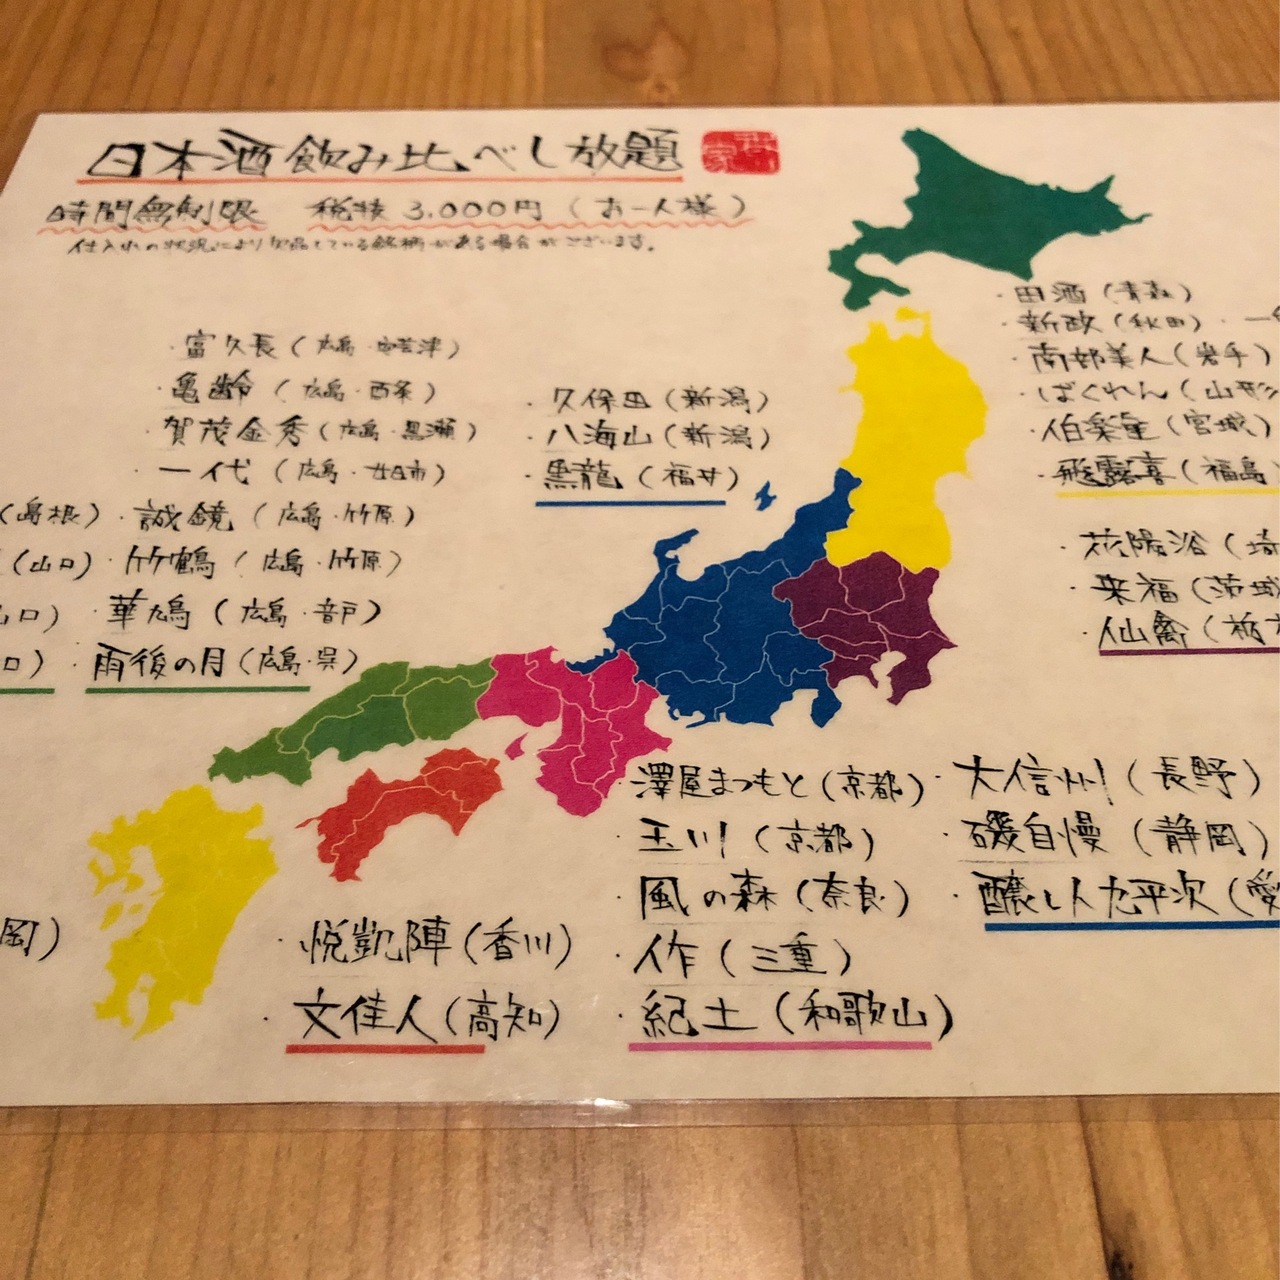 日本酒飲み比べし放題
時間無制限 税抜 3.000円（お一人様）
仕入れの状況により欠品している銘柄がある場合がございます。
・富久長（広島・安芸津）
・亀齢（広島・西条）
・賀茂金秀（広島・黒瀬）
・一代（広島・廿日市）
（島根）・誠鏡（広島・竹原）
（山口）・竹鶴（広島・竹原）
口）・華鳩（広島・音戸）
口）・雨後の月（広島・呉）
・久保田（新潟）
・八海山（新潟）
・黒龍（福井）
・田酒（青森）
・新政（秋田）・一
・南部美人（岩手）
・ばくれん（山形
・伯楽星（宮城）
・飛露喜（福島
・花陽浴（埼
・来福（茨城
・仙禽（栃
・澤屋まつもと（京都）
・玉川（京都）
・風の森（奈良）
・作（三重）
・紀土（和歌山）
・大信州（長野）
・磯自慢（静岡）
・醸し人九平次（愛
岡）
・悦凱陣（香川）
・文佳人（高知）